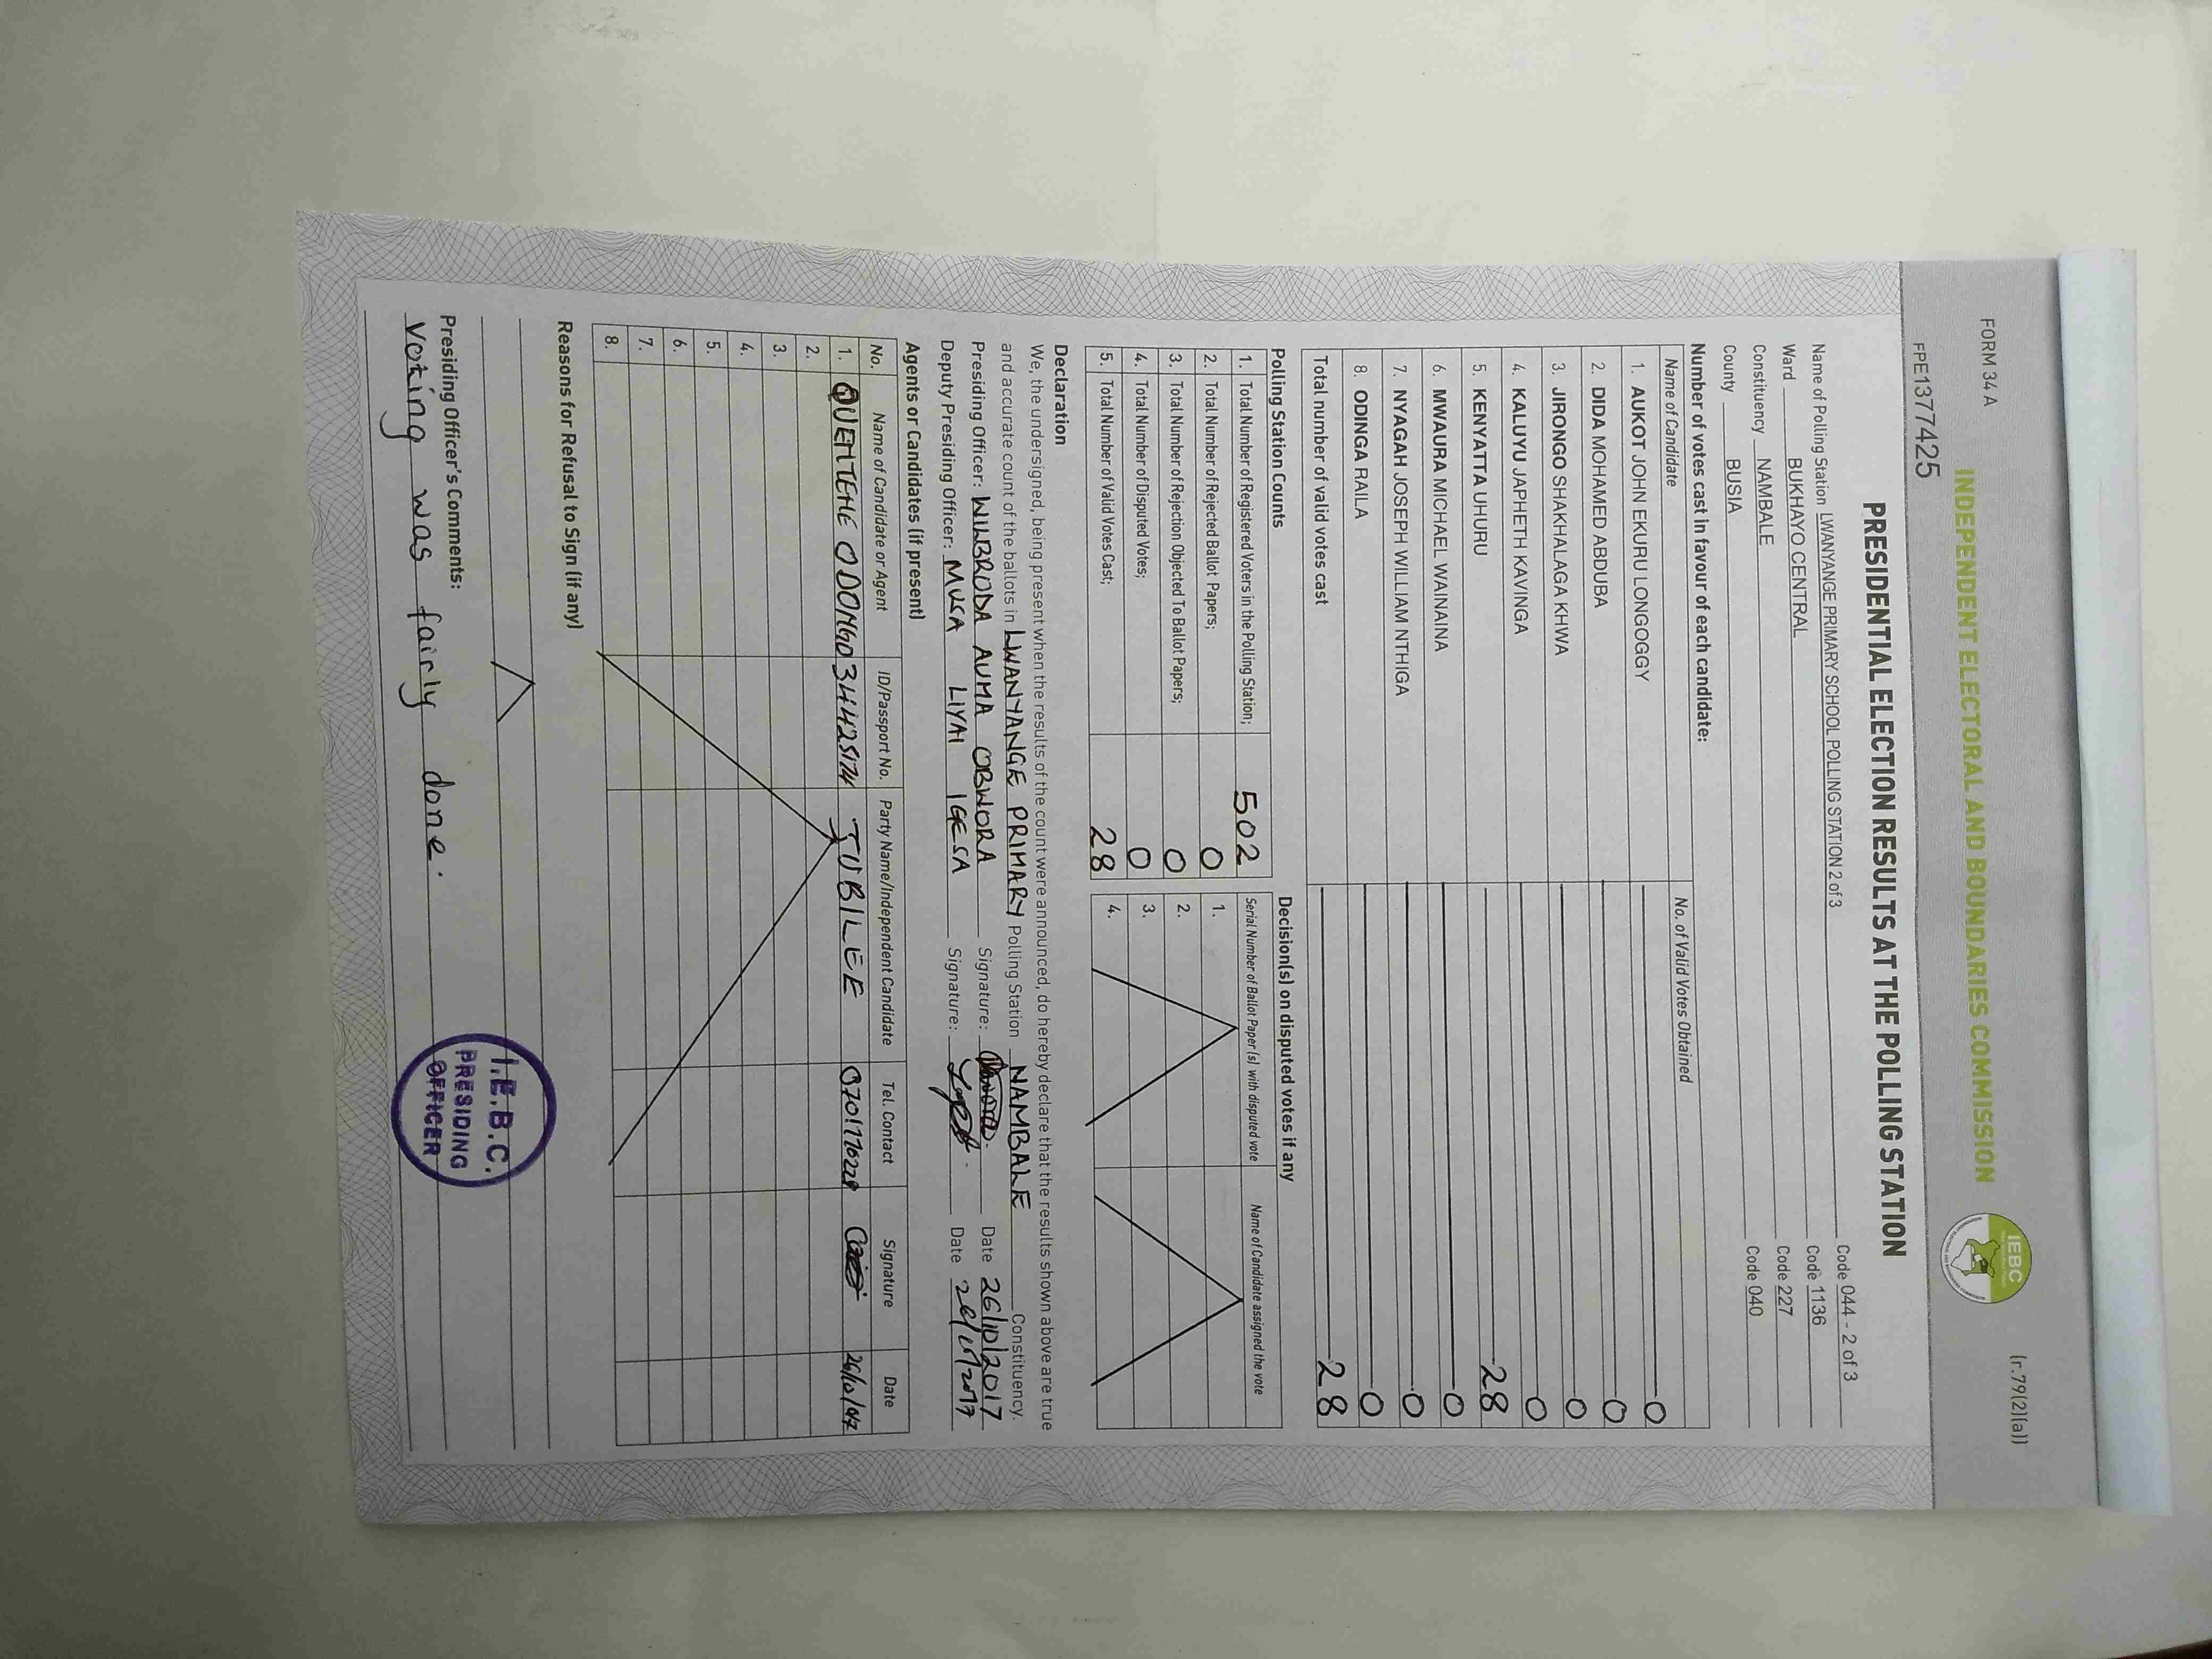 FORM 34 A
(r.79(2)(a))
INDEPENDENT ELECTORAL AND BOUNDARIES COMMISSION
IEBC
FPE1377425
PRESIDENTIAL ELECTION RESULTS AT THE POLLING STATION
Name of Polling Station LWANYANGE PRIMARY SCHOOL POLLING STATION 2 of 3 Code 044 - 2 of 3
Ward BUKHAYO CENTRAL Code 1136
Constituency NAMBALE Code 227
County BUSIA Code 040
Number of votes cast in favour of each candidate:
Name of Candidate No. of Valid Votes Obtained
1. AUKOT JOHN EKURU LONGOGGY 0
2. DIDA MOHAMED ABDUBA 0
3. JIRONGO SHAKHALAGA KHWA 0
4. KALUYU JAPHETH KAVINGA 0
5. KENYATTA UHURU 28
6. MWAURA MICHAEL WAINAINA 0
7. NYAGAH JOSEPH WILLIAM NTHIGA 0
8. ODINGA RAILA 0
Total number of valid votes cast 28
Polling Station Counts
1. Total Number of Registered Voters in the Polling Station; 502
2. Total Number of Rejected Ballot Papers; 0
3. Total Number of Rejection Objected To Ballot Papers; 0
4. Total Number of Disputed Votes; 0
5. Total Number of Valid Votes Cast; 28
Decision(s) on disputed votes if any
Serial Number of Ballot Paper (s) with disputed vote Name of Candidate assigned the vote
1.
2.
3.
4.
Declaration
We, the undersigned, being present when the results of the count were announced, do hereby declare that the results shown above are true
and accurate count of the ballots in LWANYANGE PRIMARY Polling Station NAMBALE Constituency.
Presiding Officer: WILBRODA AUMA OBWORA Signature: Date 26/10/2017
Deputy Presiding Officer: MUSA LIYAI IGESA Signature: Date 26/10/2017
Agents or Candidates (if present)
No. Name of Candidate or Agent ID/Passport No. Party Name/Independent Candidate Tel. Contact Signature Date
1. ODONGO JUBILEE
2.
3.
4.
5.
6.
7.
8.
Reasons for Refusal to Sign (if any)
Presiding Officer's Comments:
voting was fairly done.
I.E.B.C.
PRESIDING
OFFICER